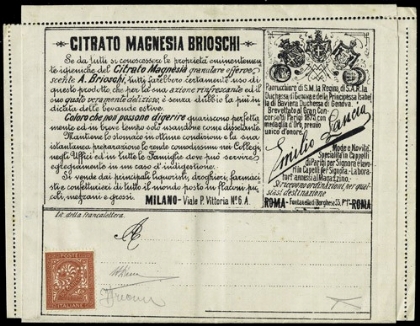 CITRATO MAGNESIA BRIOSCHI
Se da tutti si conoscessero le proprietà eminentemen-
te igieniche del Citrato Magnesia granulare efferve-
scente A. Brioschi, tutti farebbero certamente uso di
questo prodotto, che per la sua azione rinfrescante ed il
suo gusto veramente delizioso, è senza dubbio la più
distinta delle bevande estive.
Coloro che non possono digerire guariscono perfetta-
mente ed in breve tempo coll'usandone come dissetante.
Mantiene lo stomaco in ottime condizioni e la sua
istantanea preparazione lo rende comodissimo nei Collegi,
negli Uffici ed in tutte le famiglie ove può servire
egregiamente in un caso d'indigestione.
Si vende dai principali liquoristi, droghieri, farmaci-
sti e confetturieri di tutto il mondo posto in flaconi pic-
coli, mezzani e grossi.
MILANO - Viale P. Vittoria N° 6 A.
Parrucchiere di S.M. la Regina di S.A.R. la
Duchessa di Genova e della Principessa Isabel
la di Baviera Duchessa di Genova.
Brevettato al Gran Con-
corso di Parigi 1878, con
medaglia d'Oro, premio
unico d'onore.
Emilio Lancia
Mode e Novità.
Specialità in Cappelli
di Parigi per Signora e ben-
tini Capelli per Signora - Labora-
tori annessi al Magazzino.
Si ricevono ordinazioni per qual-
siasi destinazione
ROMA - Fontanella di Borghese 35, P° 1° - ROMA
della francalettera
POSTE
ITALIANE